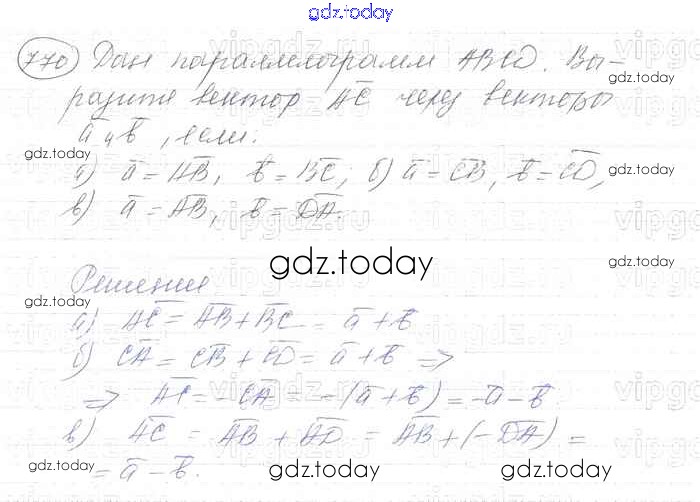 gdz.today
770 Дан параллелограмм ABCD. Вы-
разите вектор AC через векторы
a и b, если:
а) a = AB, b = BC; б) a = CB, b = CD,
в) a = AB, b = DA.
gdz.today
Решение
а) AC = AB + BC = a + b
б) CA = CB + CD = a + b ⇒
⇒ AC = -CA = -(a + b) = -a - b
в) AC = AB + AD = AB + (-DA) =
= a - b.
gdz.today gdz.today gdz.today